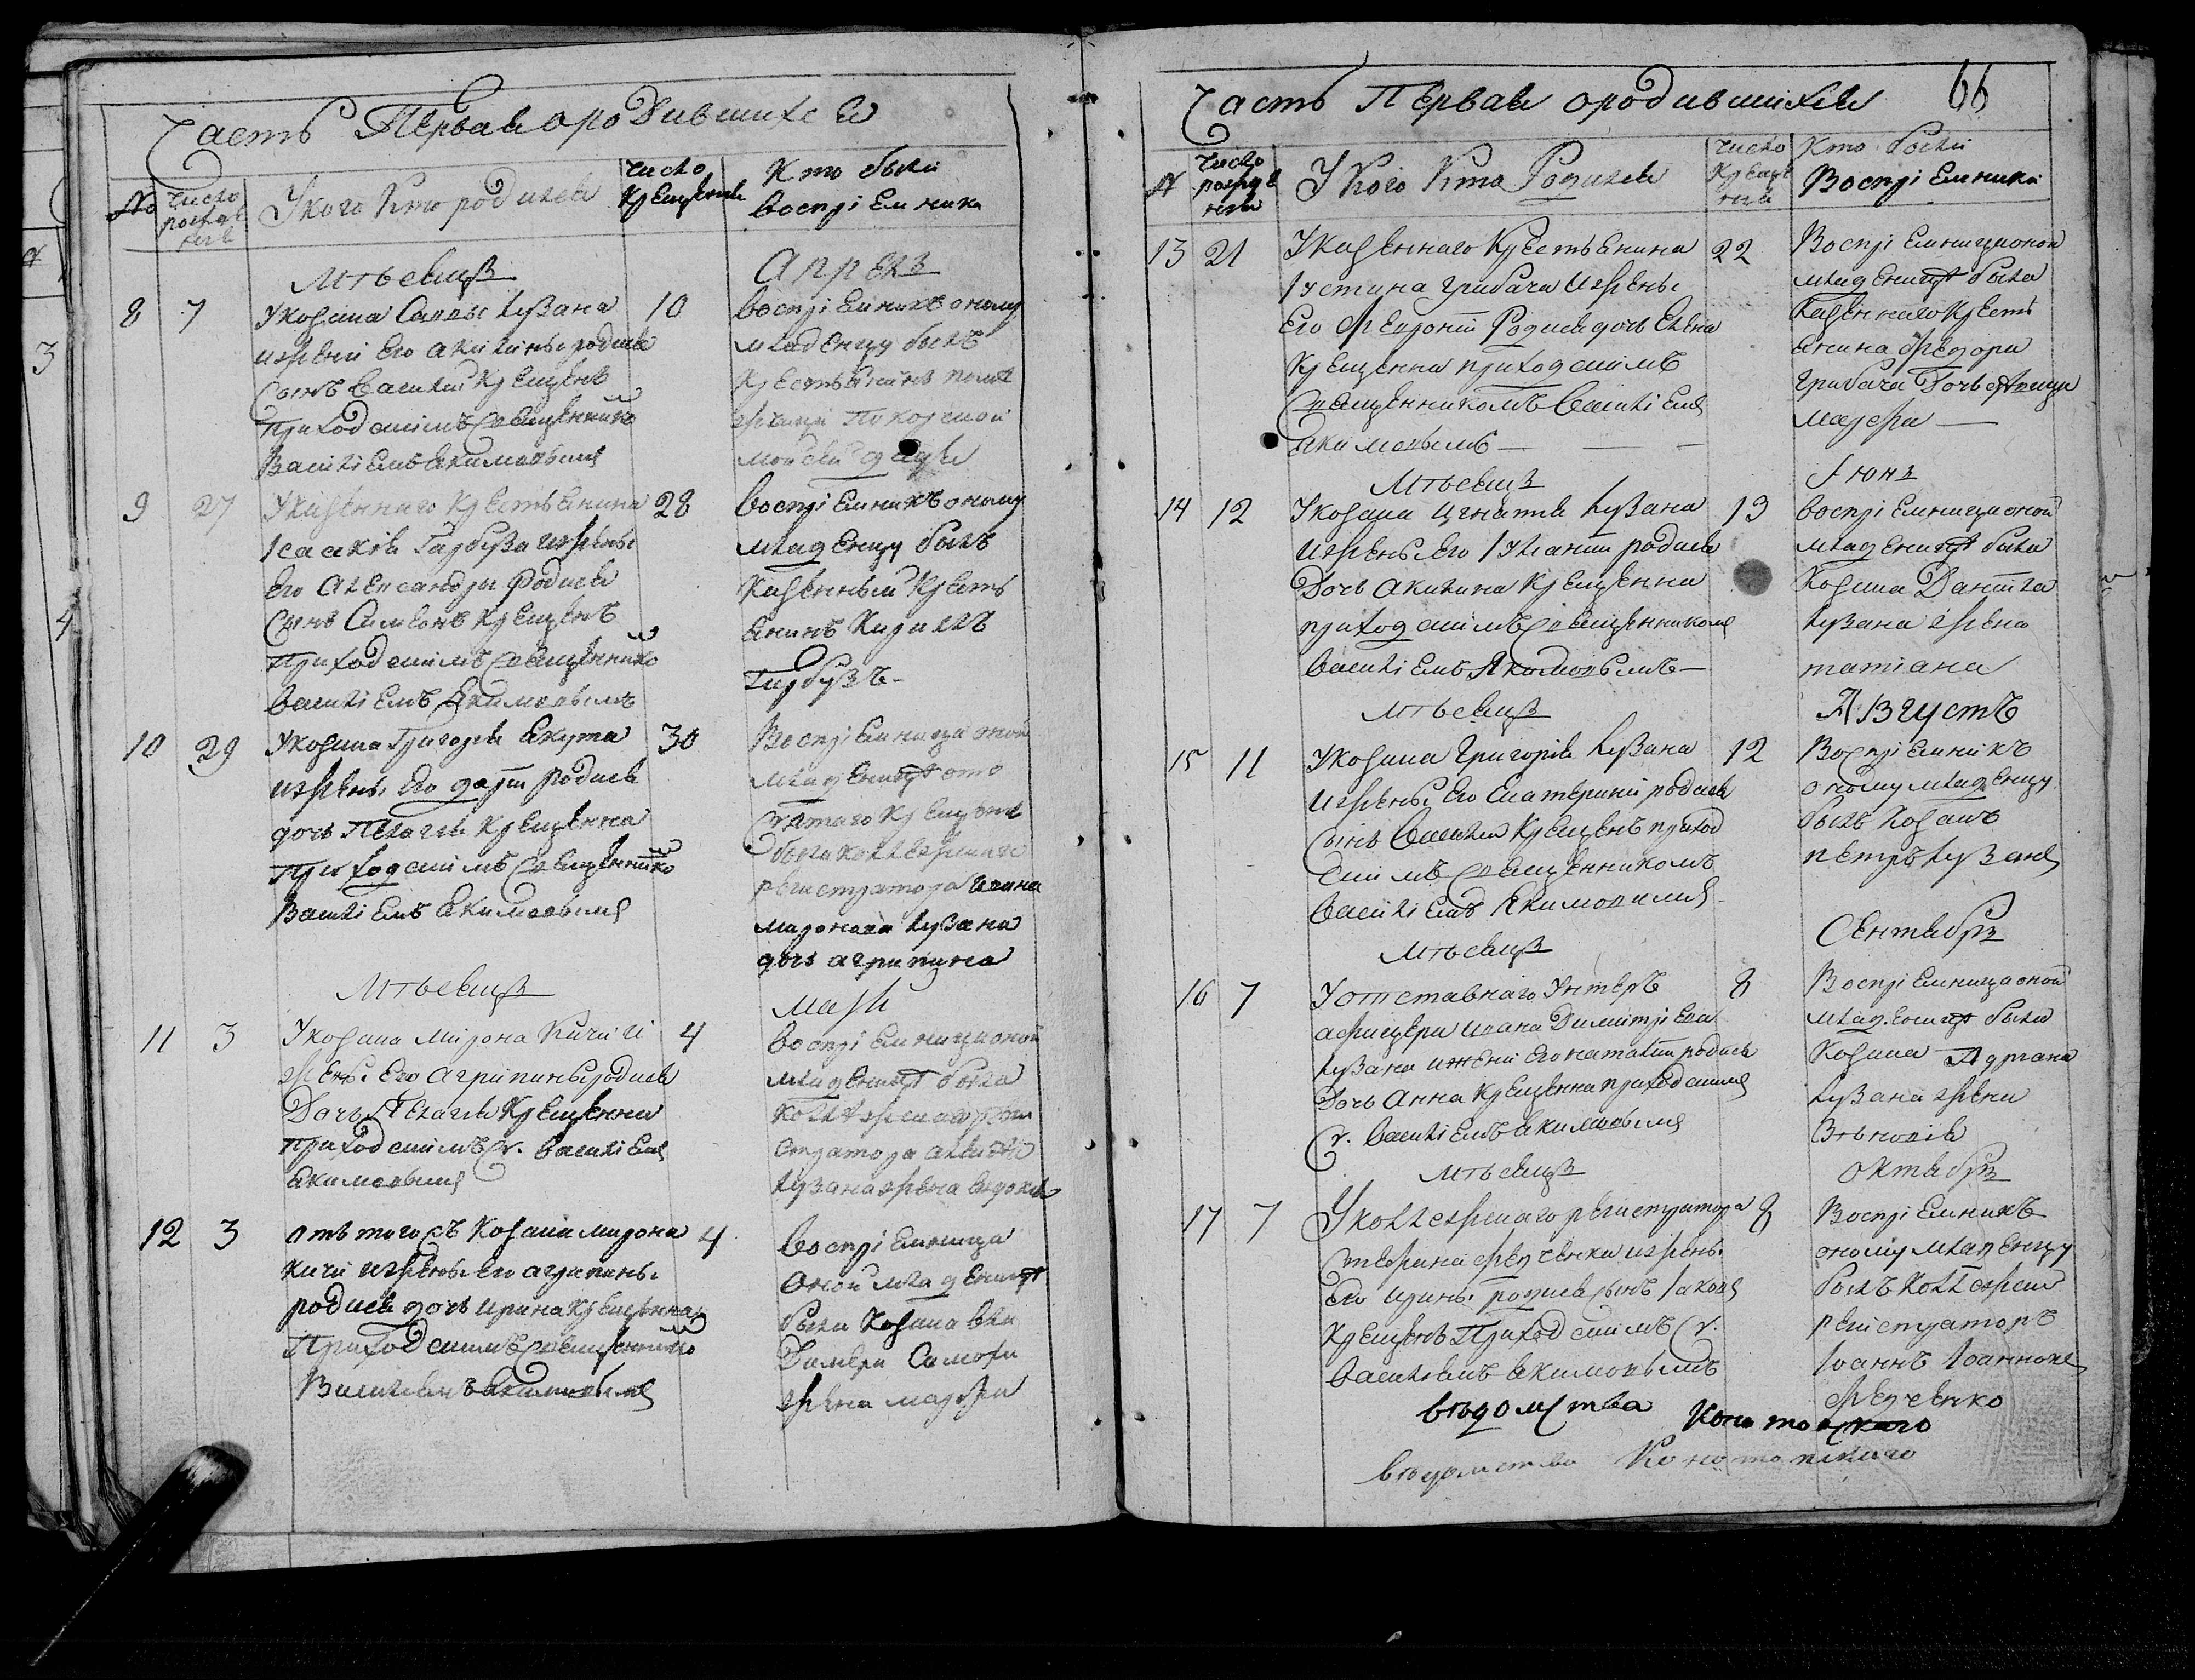 Часть Первая о родившихся
№
число рождения
У кого кто родился
число крещения
Кто были воспріемники
Мѣсяцъ
Апрель
8 7
У козака Саввы Кузана
и жени его Акилины родился
сынъ Василій крещенъ
приходскимъ священнико
Василіемъ Акимовымъ
10
воспріемникъ оному
младенцу былъ
крестьянинъ
9 27
У казеннаго крестьянина
Ісаакія Гарбуза и жены
его Александры родился
сынъ Симеонъ крещенъ
приходскимъ священнико
Василіемъ Якимовымъ
28
воспріемникъ оному
младенцу былъ
казенный кресть
янинъ Кирилъ
Гарбузъ
10 29
У козака Григорія Якута
и жены его Дарїи родися
дочь Пелагія крещенна
приходскимъ священнико
Василіемъ Акимовымъ
30
Воспріемница оной
младеницы ото
святаго крещенія
была коллежскаго
регистратора Ивана
Миронова Кузана
дочь Агрипина
Мѣсяцъ
Маій
11 3
У козака Мирона Кичи и
жены его Агрипины родися
Дочь Пелагія крещенна
приходскимъ С. Василіем
Якимовымъ
4
воспріемница оной
младеницы была
коллежскаго реги
стратора Алексѣя
Кузана жена Евдокія
12 3
отъ того съ козака Мирона
Кичи и жены его Агрипины
родися дочь Ирина крещенна
Приходскимъ священнико
Василіемъ Якимовымъ
4
воспріемница
оной младеницы
была козака
жена Марфа
Часть Первая о родившихся
66
№
число рожде нія
У кого кто Родился
число креще нія
Кто были Воспріемники
13 21
У казеннаго крестьянина
Іустина Грибача и жены
его Февроніи Родися дочь Елена
крещенна приходскимъ
священникомъ Василіемъ
Якимовымъ
22
Воспріемница оной
младеницы была
казеннаго кресть
янина Федора
Грибача дочь
Мѣсяцъ
Іюнь
14 12
У козака Игнатія Кузана
и жены его Іуліаніи родися
Дочь Акилина крещенна
приходскимъ священникомъ
Василіемъ Якимовымъ
13
воспріемница оной
младеницы была
козака Даніила
Кузана жена
Татіана
Мѣсяцъ
Августъ
15 11
У козака Григорія Кузана
и жены его Екатерини родися
сынъ Василій крещенъ приход
скимъ священникомъ
Василіемъ Якимовимъ
12
Воспріемникъ
оному младенцу
былъ козакъ
Петръ Кузанъ
Мѣсяцъ
Сентябрь
16 7
У отставнаго Унтеръ
афицера Ивана Димитріева
Кузана и жени его Наталіи родися
Дочь Анна крещенна приходским
С. Василіемъ Якимовымъ
8
Воспріемница оной
младеницы была
козака Адриана
Кузана жена
Мѣсяцъ
Октябрь
17 7
У коллежскаго регистратора
Стефана Федченка и жены
его Ирины родися сынъ Іаковъ
крещенъ Приходскимъ С.
Василіемъ Якимовымъ
8
Воспріемникъ
оному младенцу
былъ коллежскій
регистраторъ
Іоаннъ Іоанновъ
Федченко
вѣдомства Конотопского
вѣдомства Конотопскаго